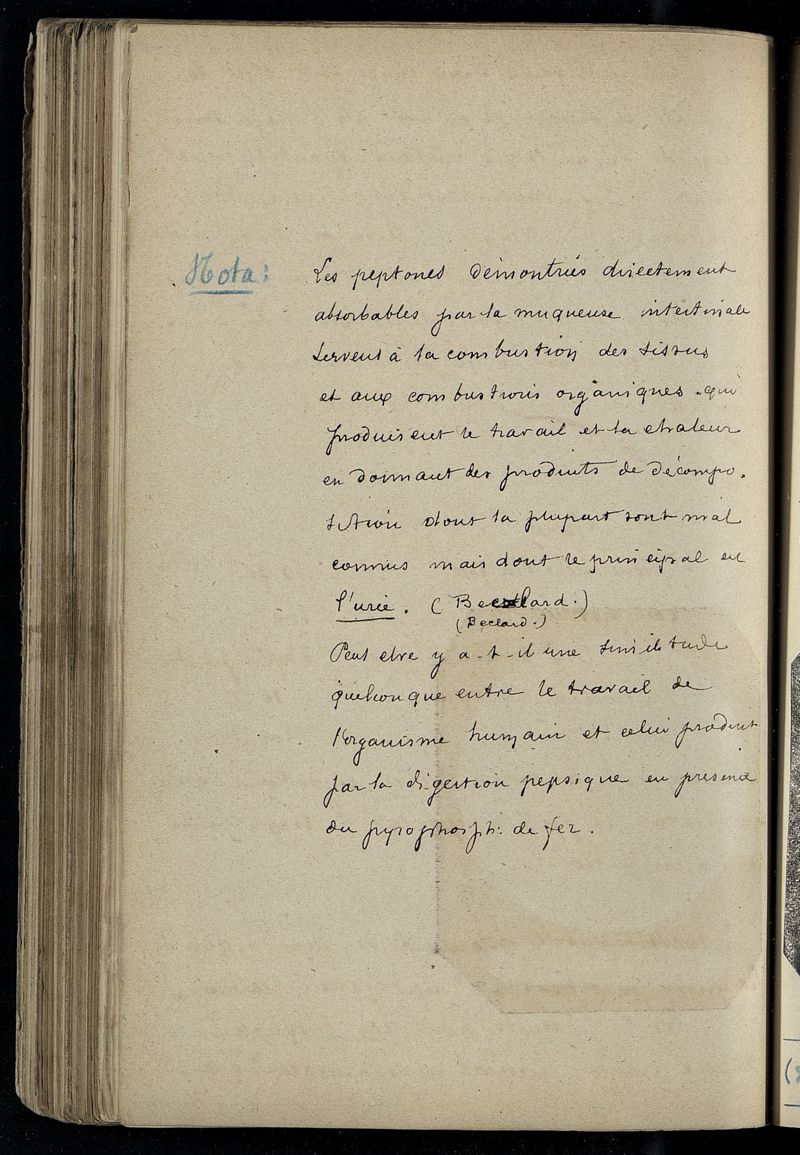 Nota:
Les peptones démontrées directement
absorbables par la muqueuse intestinale
servent à la combustion des tissus
et aux combustions organiques qui
produisent le travail et la chaleur
en donnant des produits de décompo-
sition dont la plupart sont mal
connus mais dont le principal est
l'urée. (Beclard.)
(Beclard.)
Peut etre y a-t-il une similitude
quelconque entre le travail de
l'organisme humain et celui produit
par la digestion pepsique en presence
du pyrophosph: de fer.